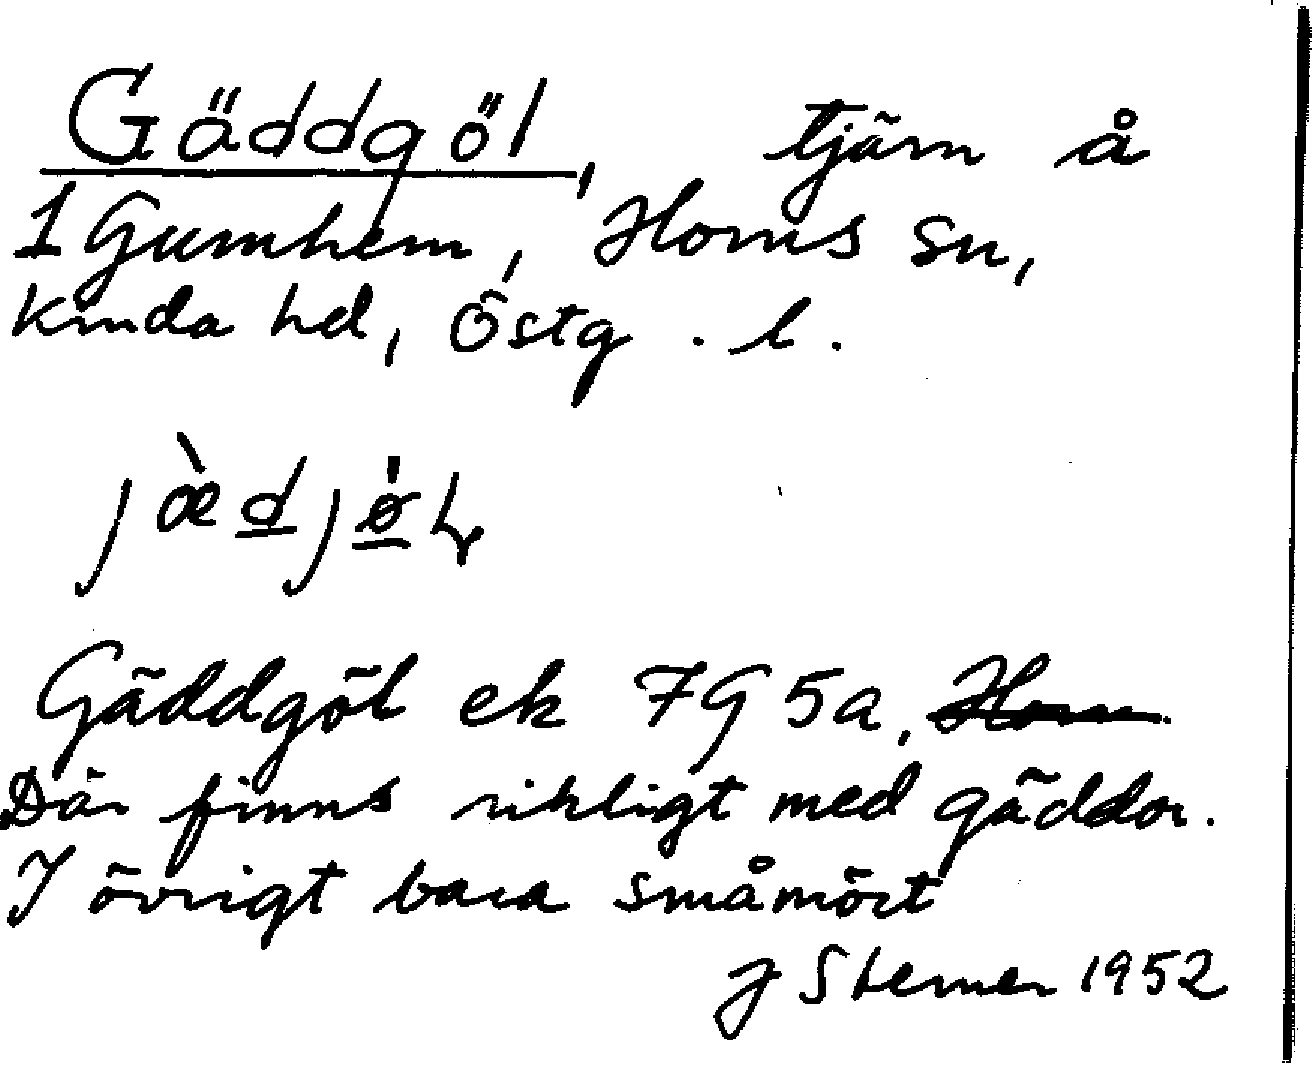 Gäddgöl, tjärn å
1 Gumhem, Horns sn,
Kinda hd, Östg. l.
Gäddgöl ek 7G 5a, Horn
Där finns rikligt med gäddor.
I övrigt bara småmört
J Sterner 1952